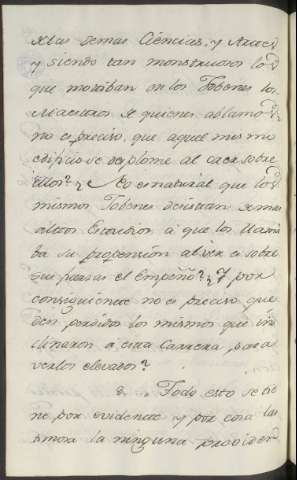 de las demas Ciencias, y Artes;
y siendo tan monstruosos los
que motiban en los Jobenes los
Maestros de quienes ablamos
no es preciso, que aquel mismo
edificio se desplome al caer sobre
ellos? y No es natural que los
mismos Jobenes desistan de mas
altos Estudios á que los llama
ba su propension al ver
el Empeño? Y por
consiguiente no es preciso que
den perdidos los mismos que in
clinaron á otra Carrera para
verlos elevados?
Todo esto se tie
ne por evidente y por cosa las
timosa la ninguna providen